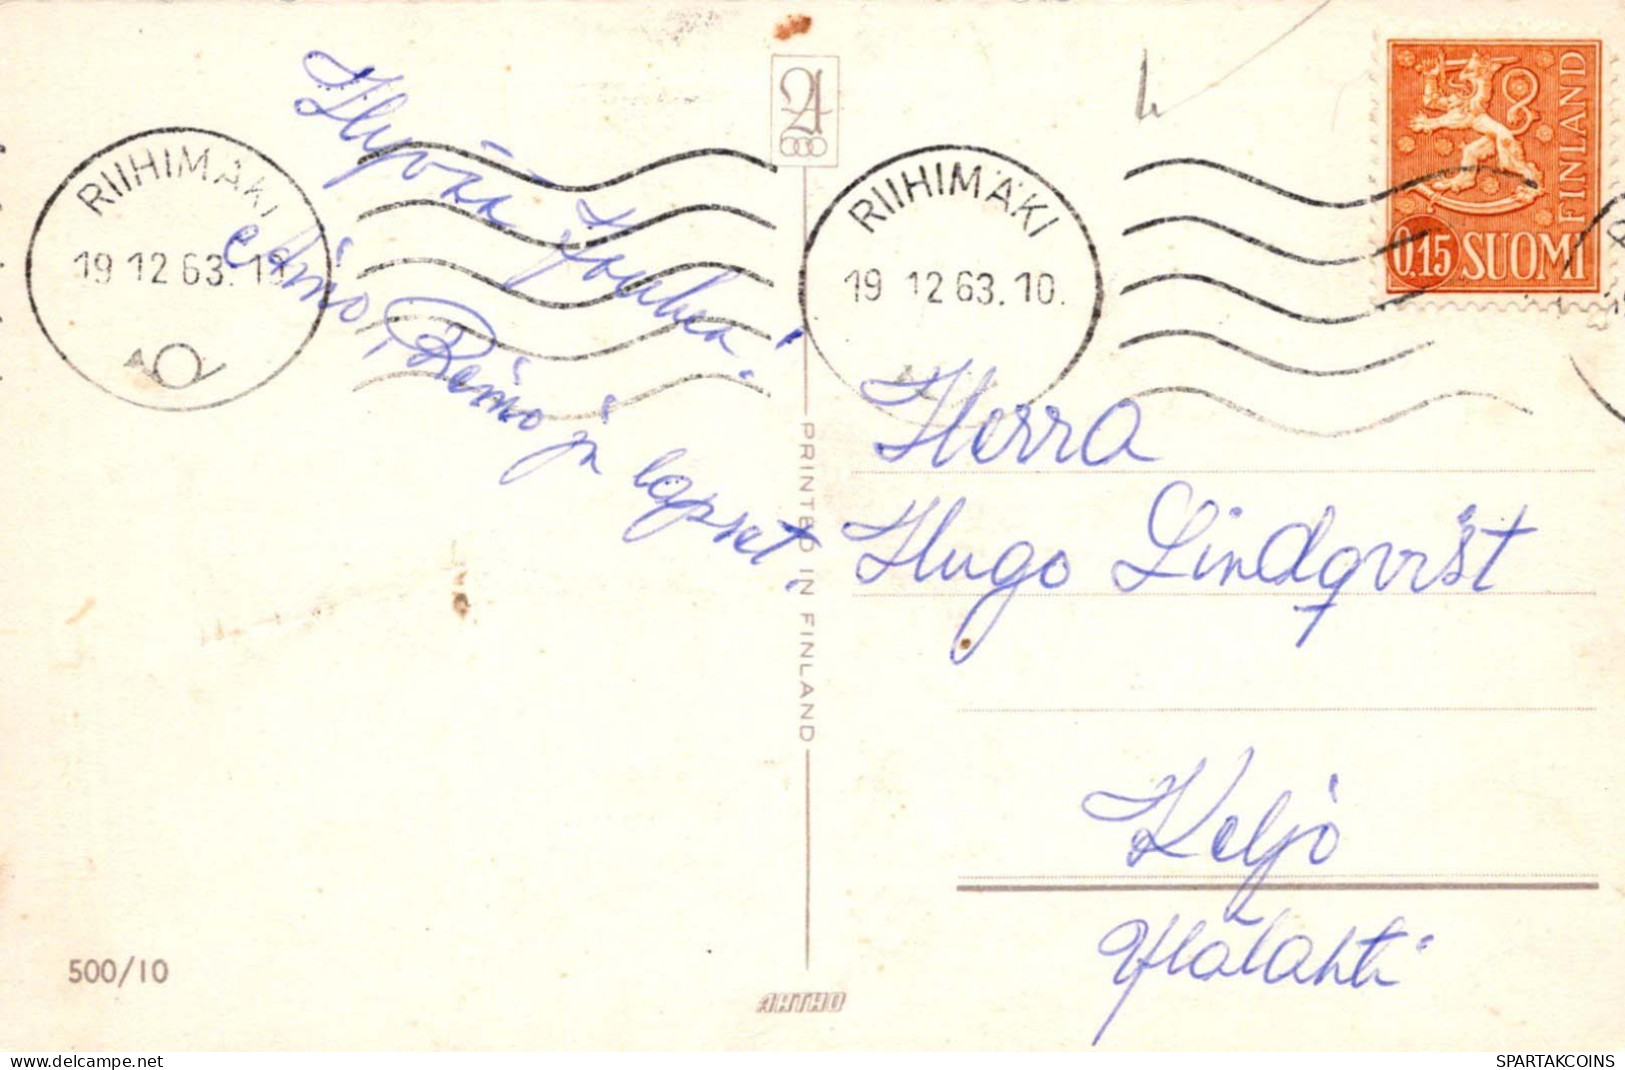 RIIHIMÄKI
19 12 63. 10
Hyvää Joulua!
Reino ja lapset.
RIIHIMÄKI
19 12 63. 10.
0,15 SUOMI
FINLAND
Herra
Hugo Lindqvist
Keljo
PRINTED IN FINLAND
500/10
ARTHO
delcampe.net
SPARTAKCOINS